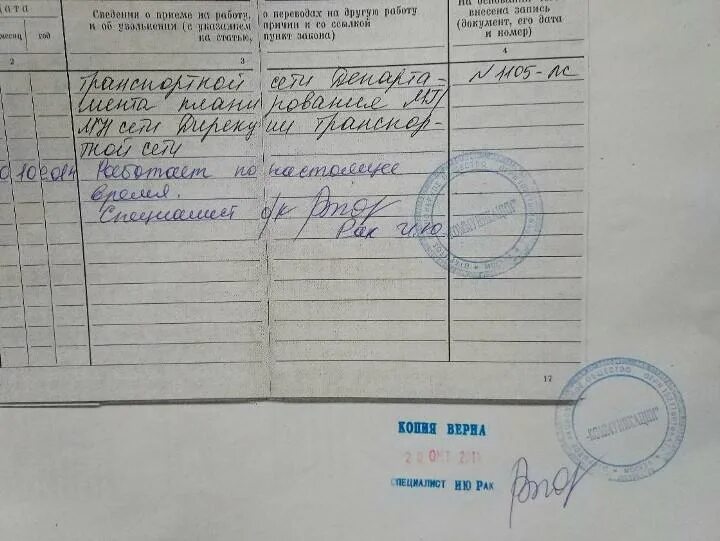 дата
Сведения о приеме на работу, о переводах на другую работу
и об увольнении (с указанием причин и со ссылкой
на статью, пункт закона)
На основании чего
внесена запись
(документ, его дата
и номер)
месяц год
2 3 4
транспортной сети Департа- №1105-лс
мента планирования МП/
сети Дирекции транспор-
тной сети
10 2014 Работает по настоящее
время.
Специалист о/к
Рак И.Ю.
"КОММУНИКАЦИИ"
МОСКВА
17
ОБЩЕСТВО
"КОММУНИКАЦИИ"
КОПИЯ ВЕРНА
20 ОКТ
СПЕЦИАЛИСТ ИЮ РАК